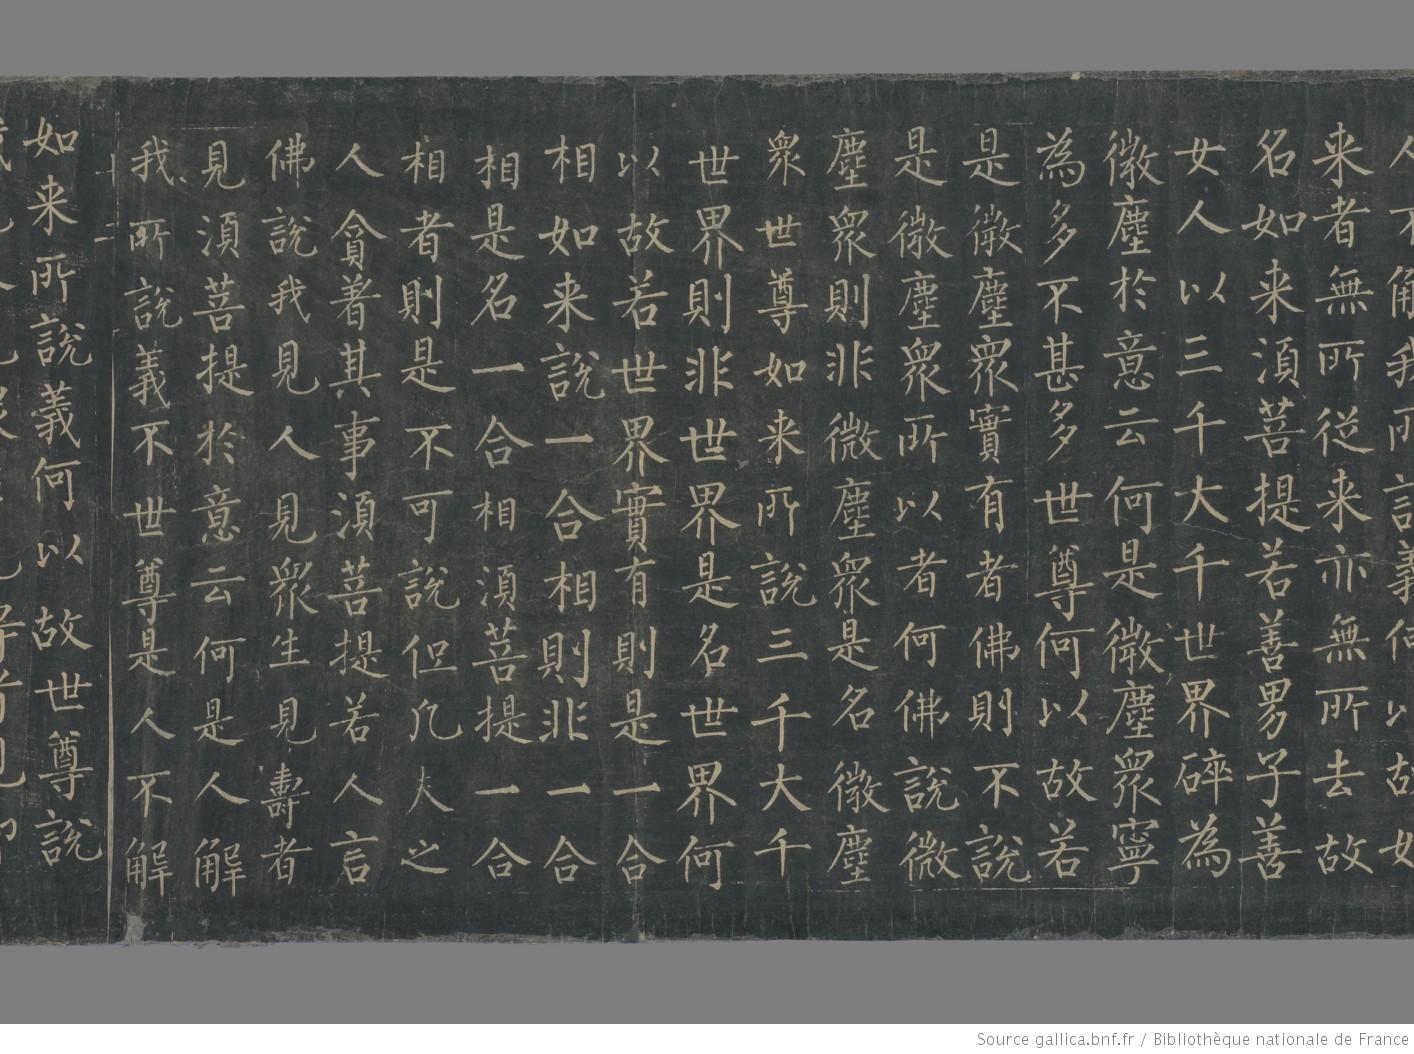 人不解我所說義何以故如
来者無所從来亦無所去故
名如来湏菩提若善男子善
女人以三千大千世界碎為
微塵於意云何是微塵衆寧
為多不甚多世尊何以故若
是微塵衆實有者佛則不說
是微塵衆所以者何佛說微
塵衆則非微塵衆是名微塵
衆世尊如来所說三千大千
世界則非世界是名世界何
以故若世界實有則是一合
相如来說一合相則非一合
相是名一合相湏菩提一合
相者則是不可說但凡夫之
人貪著其事湏菩提若人言
佛說我見人見衆生見壽者
見湏菩提於意云何是人解
我所說義不世尊是人不解
十二
如来所說義何以故世尊說
Source gallica.bnf.fr / Bibliothèque nationale de France